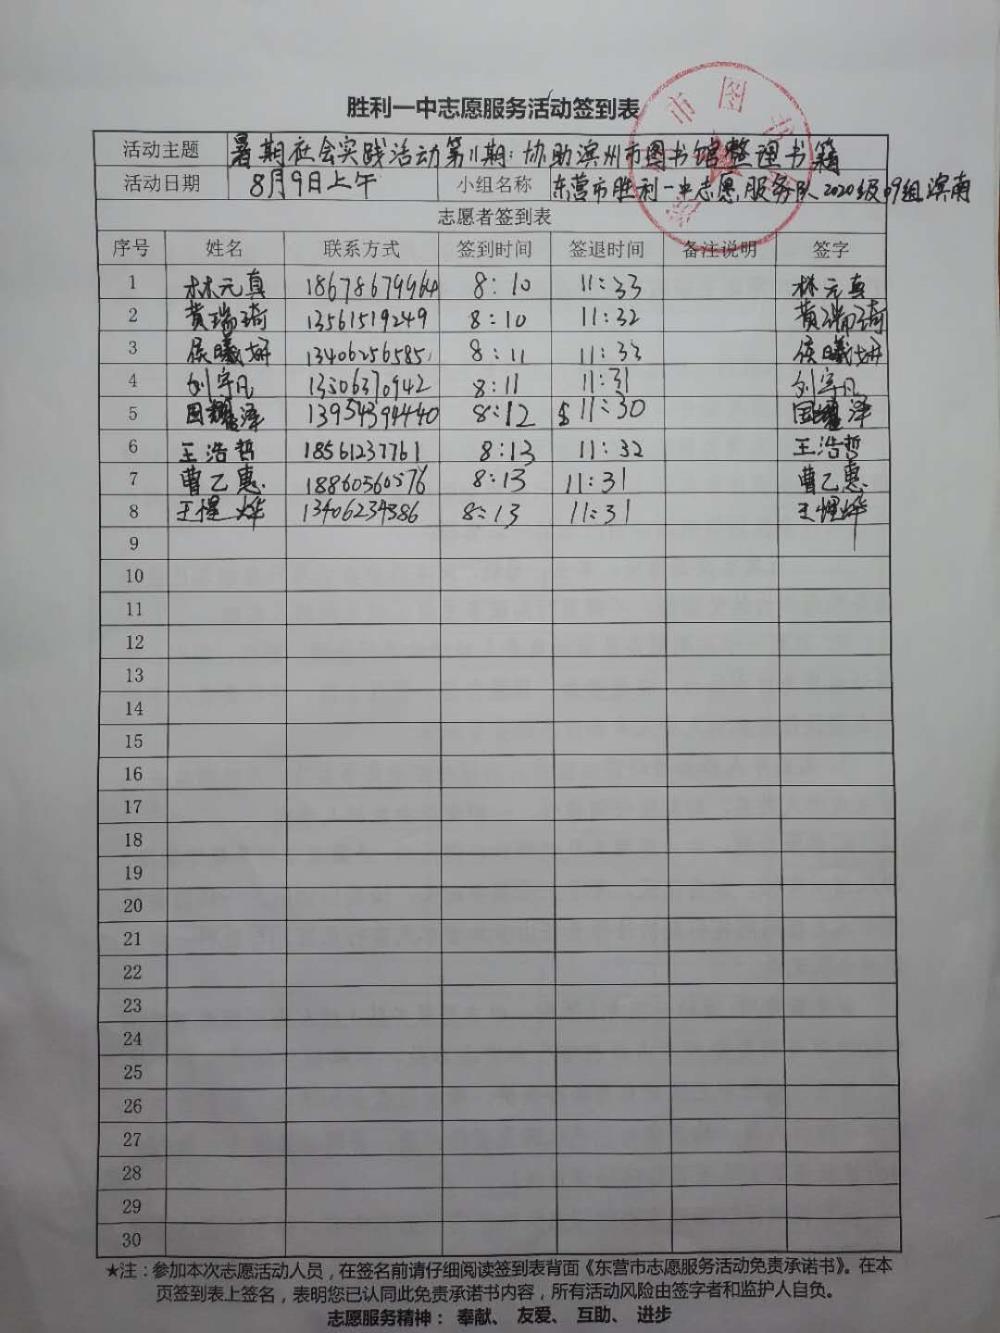 胜利一中志愿服务活动签到表
活动主题 暑期社会实践活动第11期：协助滨州市图书馆整理书籍
活动日期 8月9日上午 小组名称 东营市胜利一中志愿服务队2020级09组滨南
志愿者签到表
序号 姓名 联系方式 签到时间 签退时间 备注说明 签字
1 林元真 18678679464 8:10 11:33 林元真
2 黄瑞琦 13561519249 8:10 11:32 黄瑞琦
3 侯曦妍 13406256585 8:11 11:33 侯曦妍
4 刘宇凡 13506370942 8:11 11:31 刘宇凡
5 国耀泽 13954394440 8:12 11:30 国耀泽
6 王浩哲 18561237761 8:13 11:32 王浩哲
7 曹乙惠 18860560576 8:13 11:31 曹乙惠
8 王惺烨 13406234386 8:13 11:31 王惺烨
9
10
11
12
13
14
15
16
17
18
19
20
21
22
23
24
25
26
27
28
29
30
★注：参加本次志愿活动人员，在签名前请仔细阅读签到表背面《东营市志愿服务活动免责承诺书》。在本
页签到表上签名，表明您已认同此免责承诺书内容，所有活动风险由签字者和监护人自负。
志愿服务精神： 奉献、 友爱、 互助、 进步
市图书